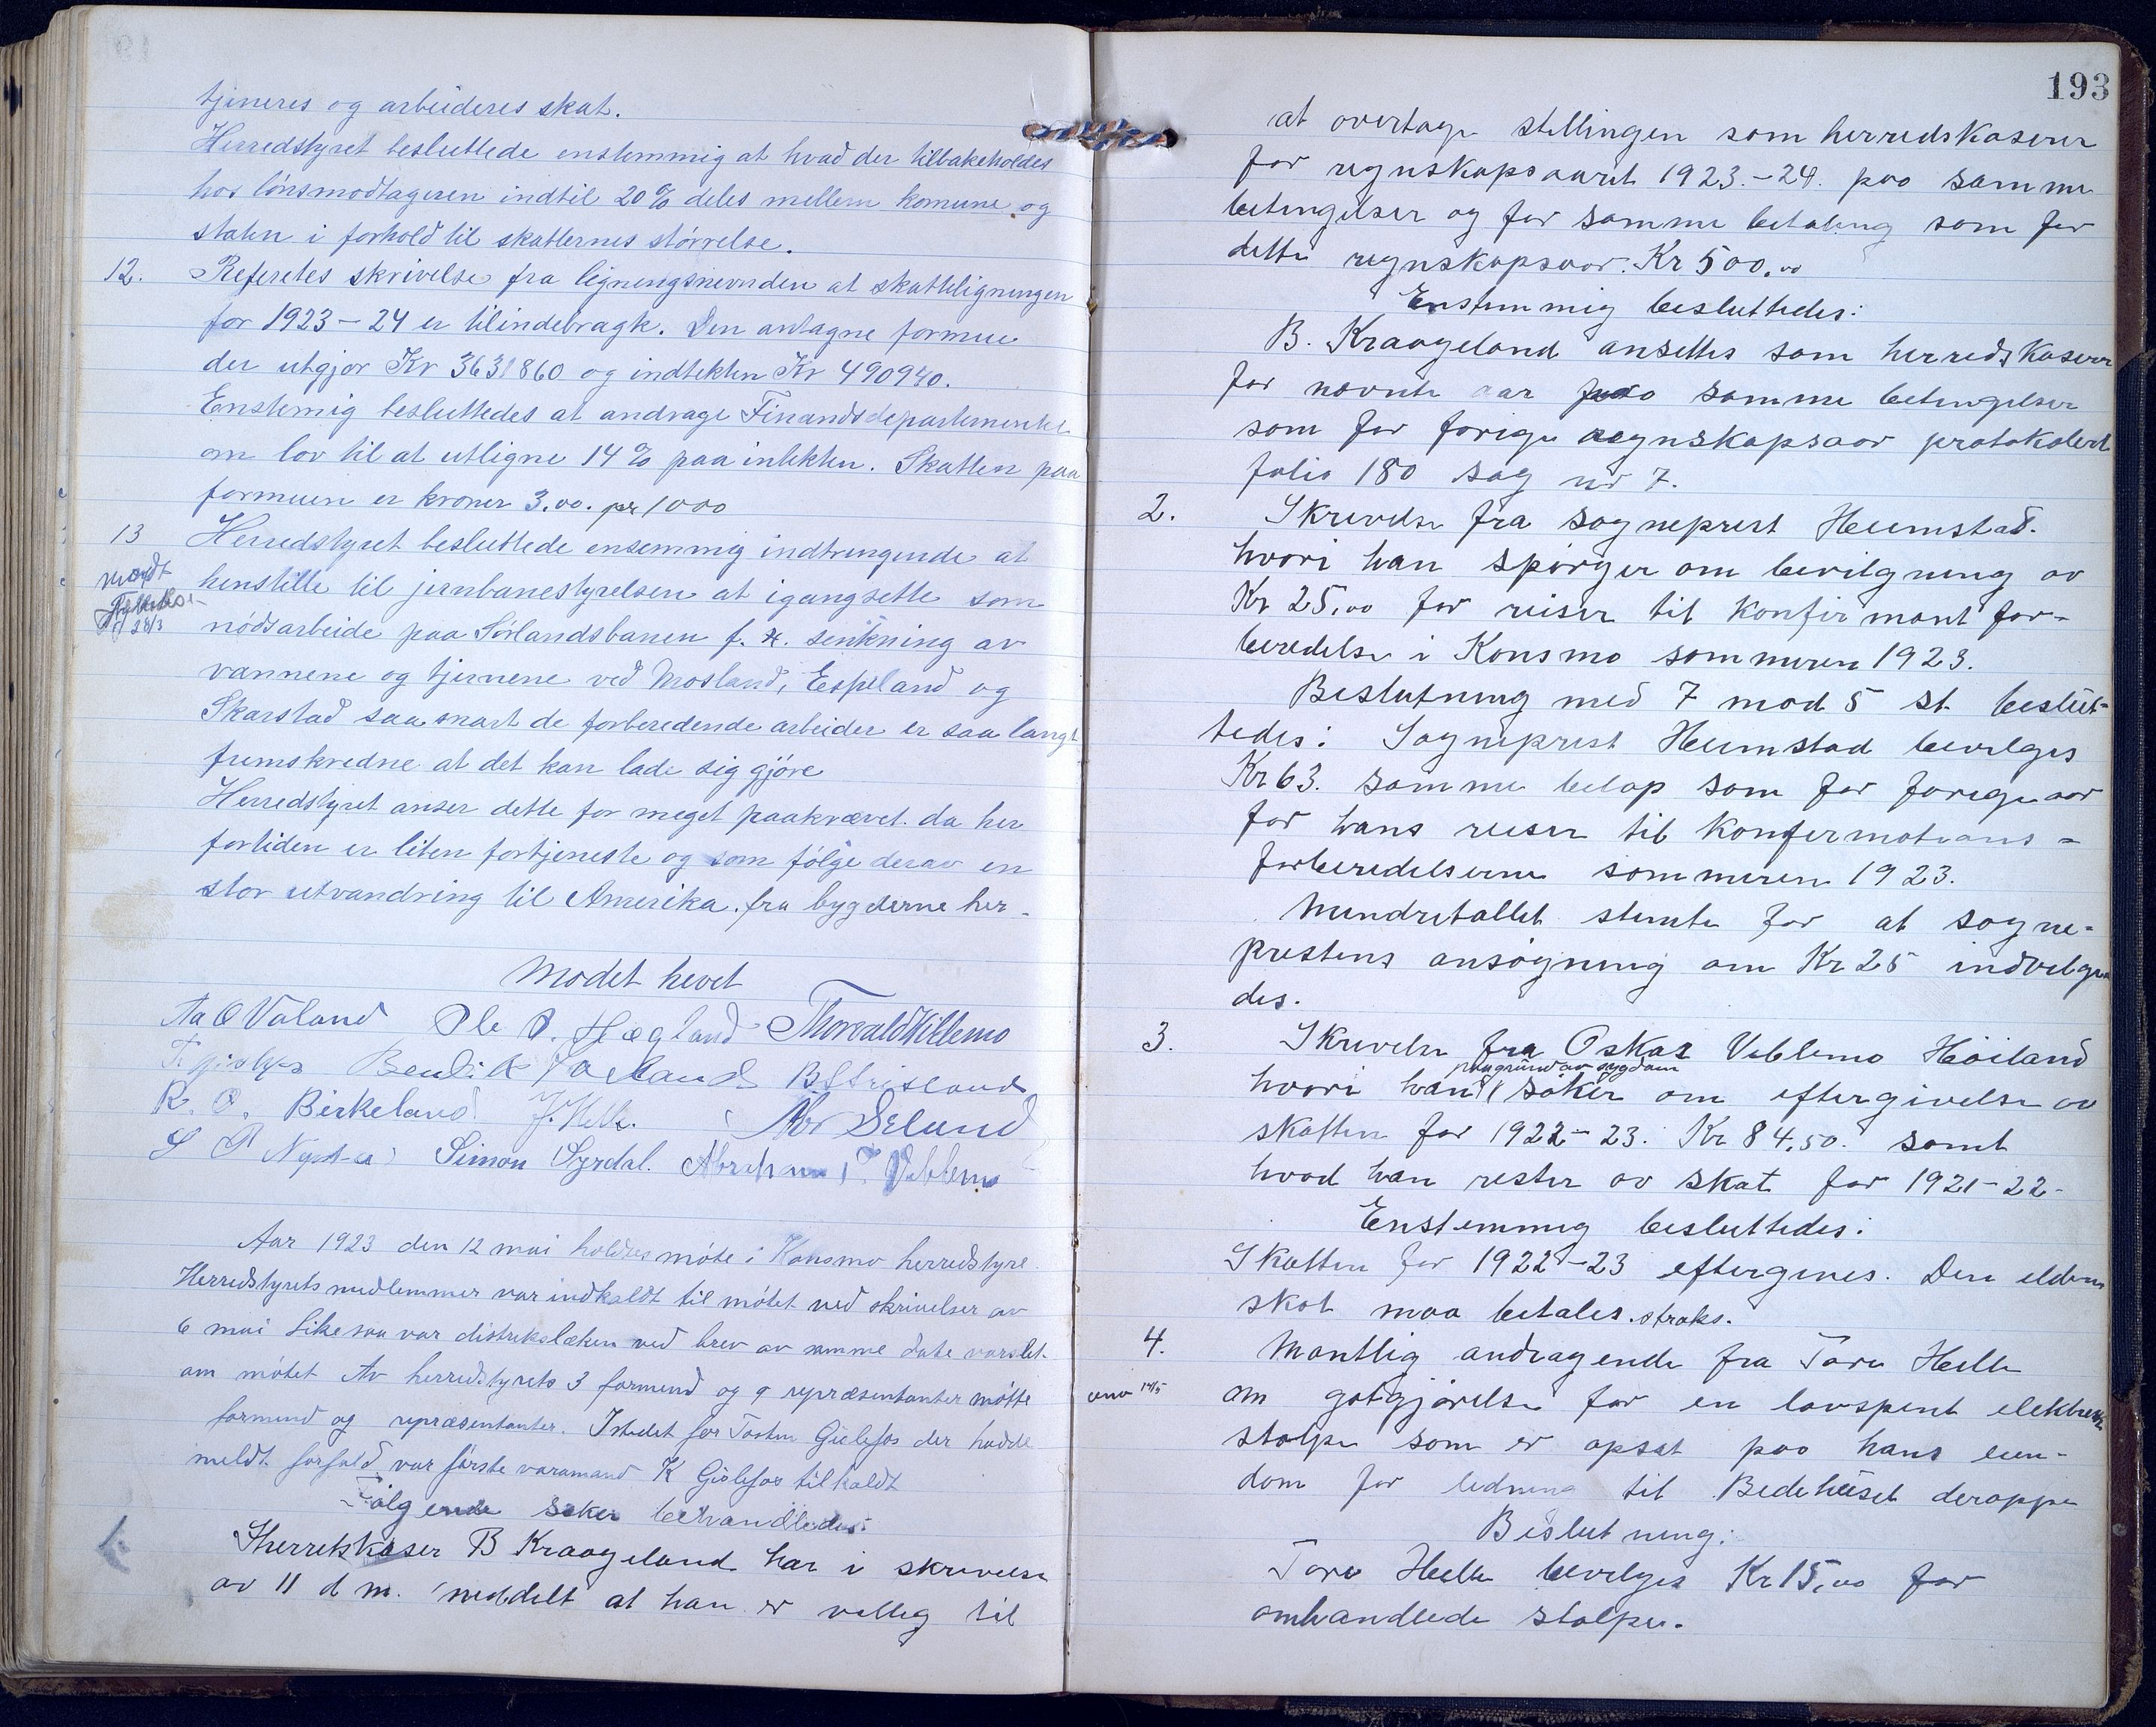 tjeneres og arbeideres skat.
Herredstyret besluttede enstemmig at hvad der tilbakeholdes
hos lönsmodtageren indtil 20% deles mellem komune og
staten i forhold til skatternes störrelse.
12. Referetes skrivelse fra ligningsnevnden at skatteligningen
for 1923-24 er tilindebragt. Den antagne formue
der utgjor Kr 3631860 og indtekten Kr 490940.
Enstemig besluttedes at andrage Finandsdepartementet
om lov til at utligne 14% paa intekten. Skatten paa
formuen er kroner 3.00. pr 1000
13 Herredstyret besluttede ensemmig indtrengende at
henstille til jernbanestyrelsen at igangsette som
28/3
nödsarbeide paa Sörlandsbanen f. x. senkning av
vannene og tjernene ved Mosland, Espeland og
Skarstad saa snart de forberedende arbeider er saa langt
fremskredne at det kan lade sig gjöre
Herredstyret anser dette for meget paakrævet. da her
fortiden er liten fortjeneste og som fölge derav en
stor utvandring til Amerika. fra bygderne her.
Modet hevet
Aa O Valand Ole O. Hægland Thorvald Viblemo
Bendik Valand B Strisland
K. O. Birkeland J. Helle. Abr Selund
S P Simon Syrdal. Abraham T. Viblemo
Aar 1923 den 12 mai holdtes möte i Konsmo herredstyre.
Herredstyrets medlemmer var indkaldt til mötet ved skrivelser av
6 mai Likesaa var distrikslæken ved brev av samme date varslet
om mötet Av herredstyrets 3 formend og 9 repræsentanter mötte
formend og repræsentanter. Istedet for Tosten Gislefos der hadde
meldt forfald var förste varamand K Gislefos tilkaldt
Fölgende saker behandledes:
1. Herretskaser B Kraageland har i skrivelse
av 11 d m. meddelt at han er vellig til
193
at overtage stellingen som herredskaserer
for regnskapsaaret 1923.-24. paa samme
betingelser og for samme betaling som for
dette regnskapsaar. Kr 500.00
Enstemmig besluttedes:
B. Kraageland ansettes som herredskaserer
for nævnte aar paa samme betingelser
som for forige regnskapsaar protokolert
folio 180 sag nr 7.
2. Skrivelse fra sogneprest Heimstad.
hvori han spörger om bevilgning av
Kr 25,00 for reiser til konfirmant for-
beredelse i Konsmo sommeren 1923.
Beslutning med 7 mod 5 st. beslut-
tedes: Sogneprest Heimstad bevilges
Kr 63. samme belop som for forige aar
for hans reiser til konfermations-
forberedelserne sommeren 1923.
Mindretallet stemte for at sogne-
prestens ansögning om Kr 25 indvilge-
des.
3. Skrivelse fra Oskar Viblemo Höiland
paagrund av sygdom
hvori han söker om eftergivelse av
skatten for 1922-23. Kr 84.50. samt
hvad han rester av skat for 1921-22-
Enstemmig besluttedes:
Skatten for 1922-23 eftergives. Den eldere
skat maa betales straks.
4. Montlig andragende fra Tore Helle
14/5 om gotgjörelse for en lavspent elektrisk
stolpe som er opsat paa hans eien-
dom for ledning til Bedehuset deroppe
Beslutning:
Tore Helle bevilges Kr 15,00 for
omhandlede stolpe.